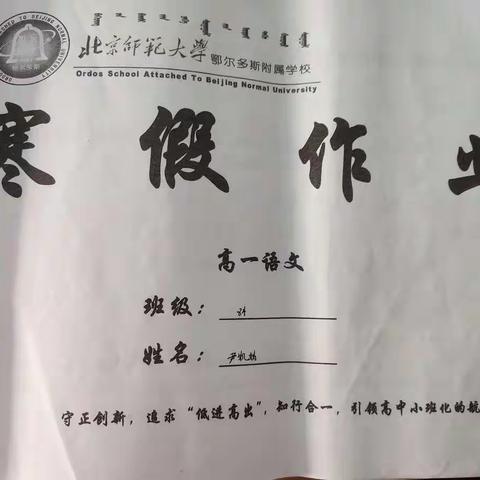 北京师范大学鄂尔多斯附属学校
Ordos School Attached To Beijing Normal University
寒假作业
高一语文
班级：
姓名：
守正创新，追求“低进高出”，知行合一，引领高中小班化的航